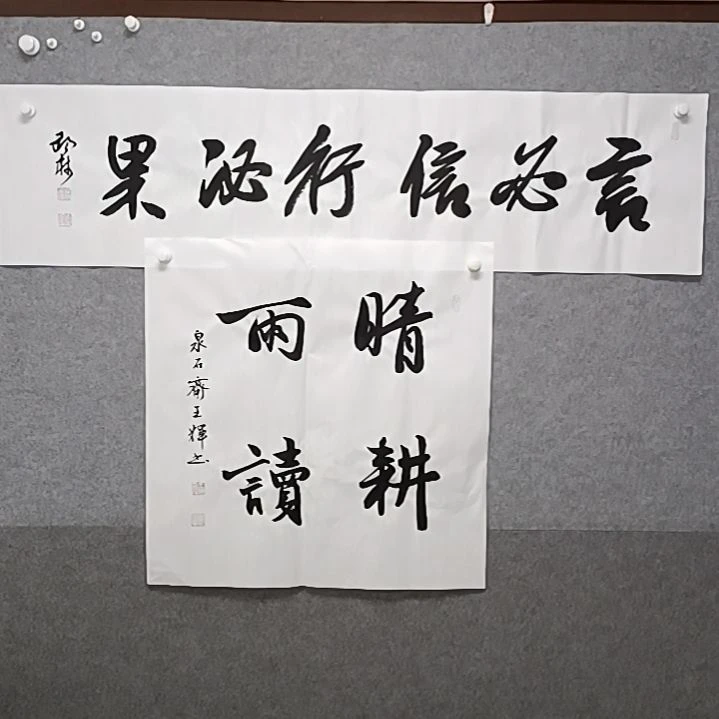 言必信行必果
晴耕
雨讀
泉石齋王輝书